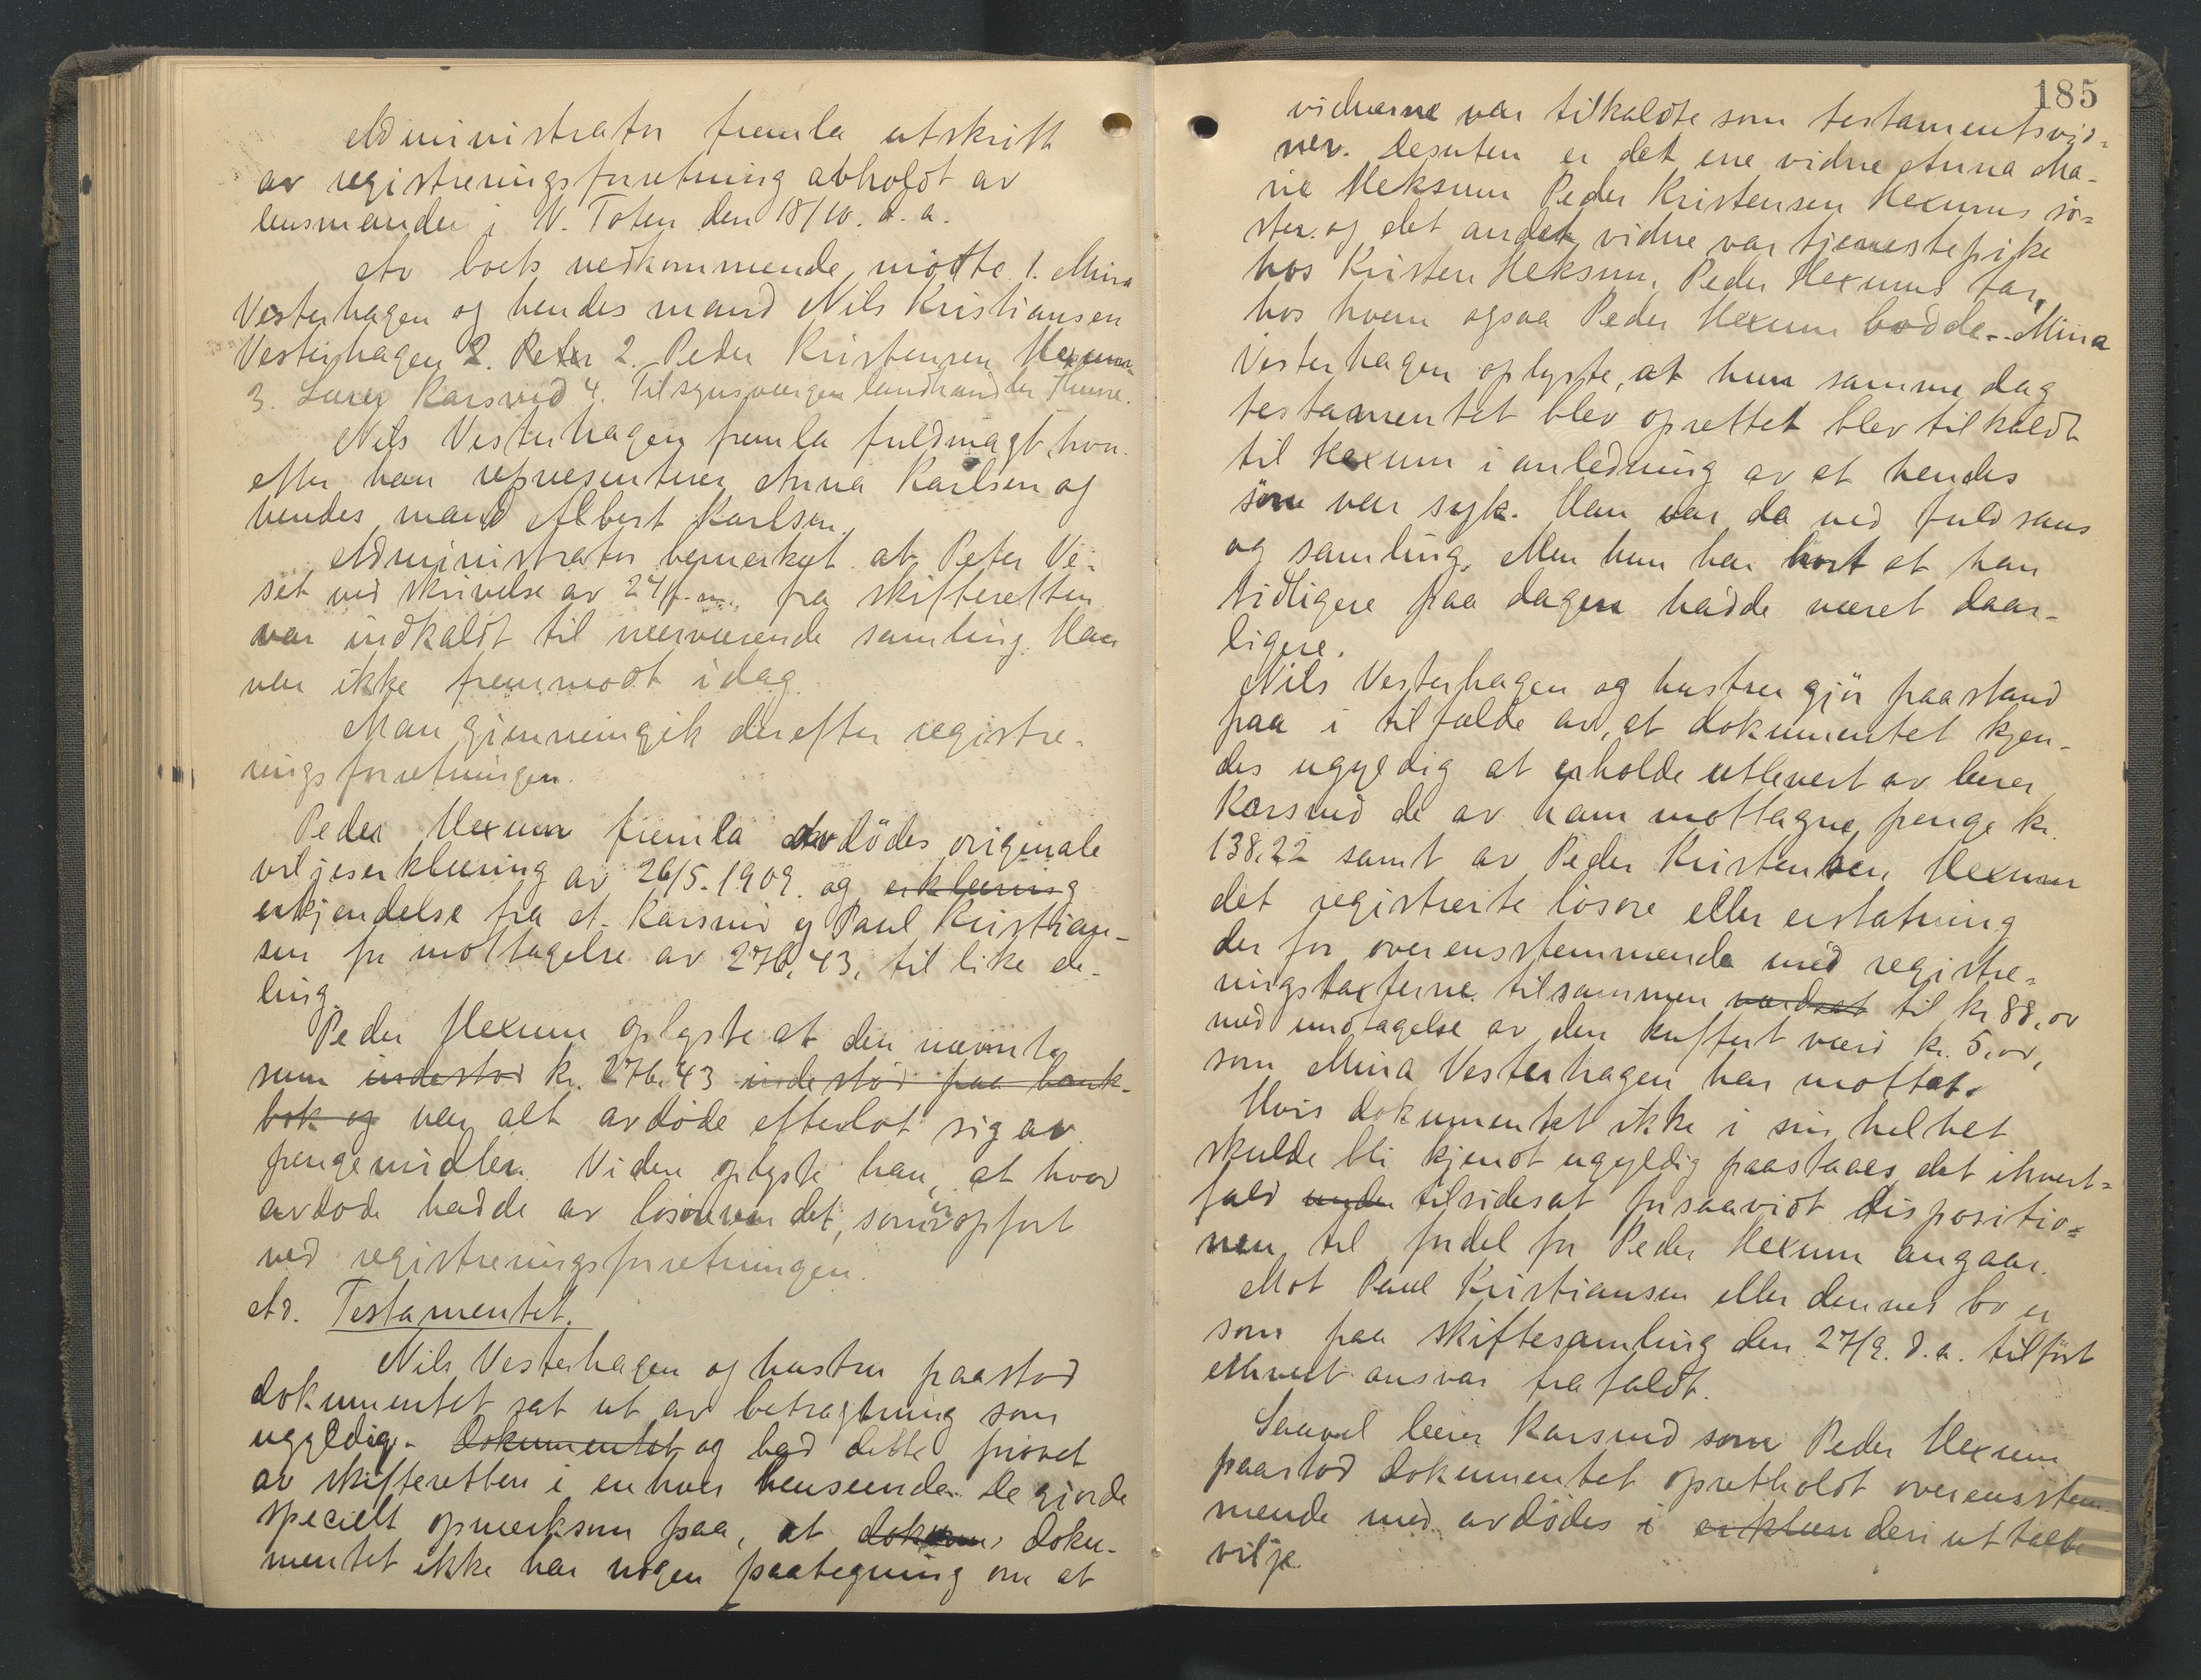 Administrator fremla utskrift
av registreringsforretning avholdt av
lensmanden i V. Toten den 18/10. d. a.
Av boets vedkommende mötte 1. Mina
Vesterhagen og hendes mand Nils Kristiansen
Vesterhagen 2. Peter 2. Peder Kristensen Hexum
3. Lærer Karsrud 4. Tilsynsværgen landhandler
Nils Vesterhagen fremla fuldmagt hvor-
efter han representerer Anna Karlsen og
hendes mand Albert Karlsen.
Administrator bemerket at Peter Ve-
set ved skrivelse av 24/f. m. fra skifteretten
var indkaldt til nærværende samling. Han
var ikke fremmødt idag.
Man gjennemgik derefter registre-
ringsforretningen.
Peder Hexum fremla avdödes originale
viljeserklæring av 26/5. 1909. og erklæring
erkjendelse fra A. Karsrud og Paul Kristian-
sen for mottagelse av 276,43, til like de-
ling.
Peder Hexum oplyste at den nævnte
sum indestod kr. 276,43 indestod paa bank-
bok og var alt avdöde efterlot sig av
pengemidler. Videre oplyste han, at hvad
avdöde hadde av lösöre var det, som er opfört
ved registreringsforretningen.
Ad. Testamentet.
Nils Vesterhagen og hustru paastod
dokumentet sat ut av betragtning som
ugyldig. Dokumentet og bad dette prövet
av skifteretten i enhver henseende. De gjorde
specielt opmerksom paa, at dokum doku-
mentet ikke har nogen paategning om at
185
vidnerne var tilkaldte som testamentsvid-
ner. Desuten er det ene vidne Anna Ma-
rie Heksum Peder Kristensen Hexums sö-
ster og det andet vidne var tjenestepike
hos Kristen Heksum, Peder Hexums far,
hos hvem ogsaa Peder Hexum bodde. Mina
Vesterhagen oplyste, at hun samme dag
testamentet blev oprettet blev tilkaldt
til Hexum i anledning av at hendes
sönn var syk. Han var da ved fuld sans
og samling. Men hun har hört at han
tidligere paa dagen hadde været daar-
ligere.
Nils Vesterhagen og hustru gjör paastand
paa i tilfælde av, at dokumentet kjen-
des ugyldig at erholde utlevert av lærer
Karsrud de av ham mottagne penge kr.
138,22 samt av Peder Kristensen Hexum
det registrerte lösöre eller erstatning
derfor overensstemmende med registre-
ringstaxterne tilsammen værdsat til kr 88,00
med undtagelse av den kuffert værd kr. 5,00,
som Mina Vesterhagen har mottat.
Hvis dokumentet ikke i sin helhet
skulde bli kjendt ugyldig paastaaes det ihvert-
fald under tilsidesat forsaavidt dispositio-
nen til fordel for Peder Hexum angaar.
Mot Paul Kristiansen eller dennes bo er
som paa skiftesamling den 27/9. d. a. tilfört
ethvert ansvar frafaldt.
Saavel lærer Karsrud som Peder Hexum
paastod dokumentet opretholdt overensstem-
mende med avdödes i erklæn deri uttalte
vilje.